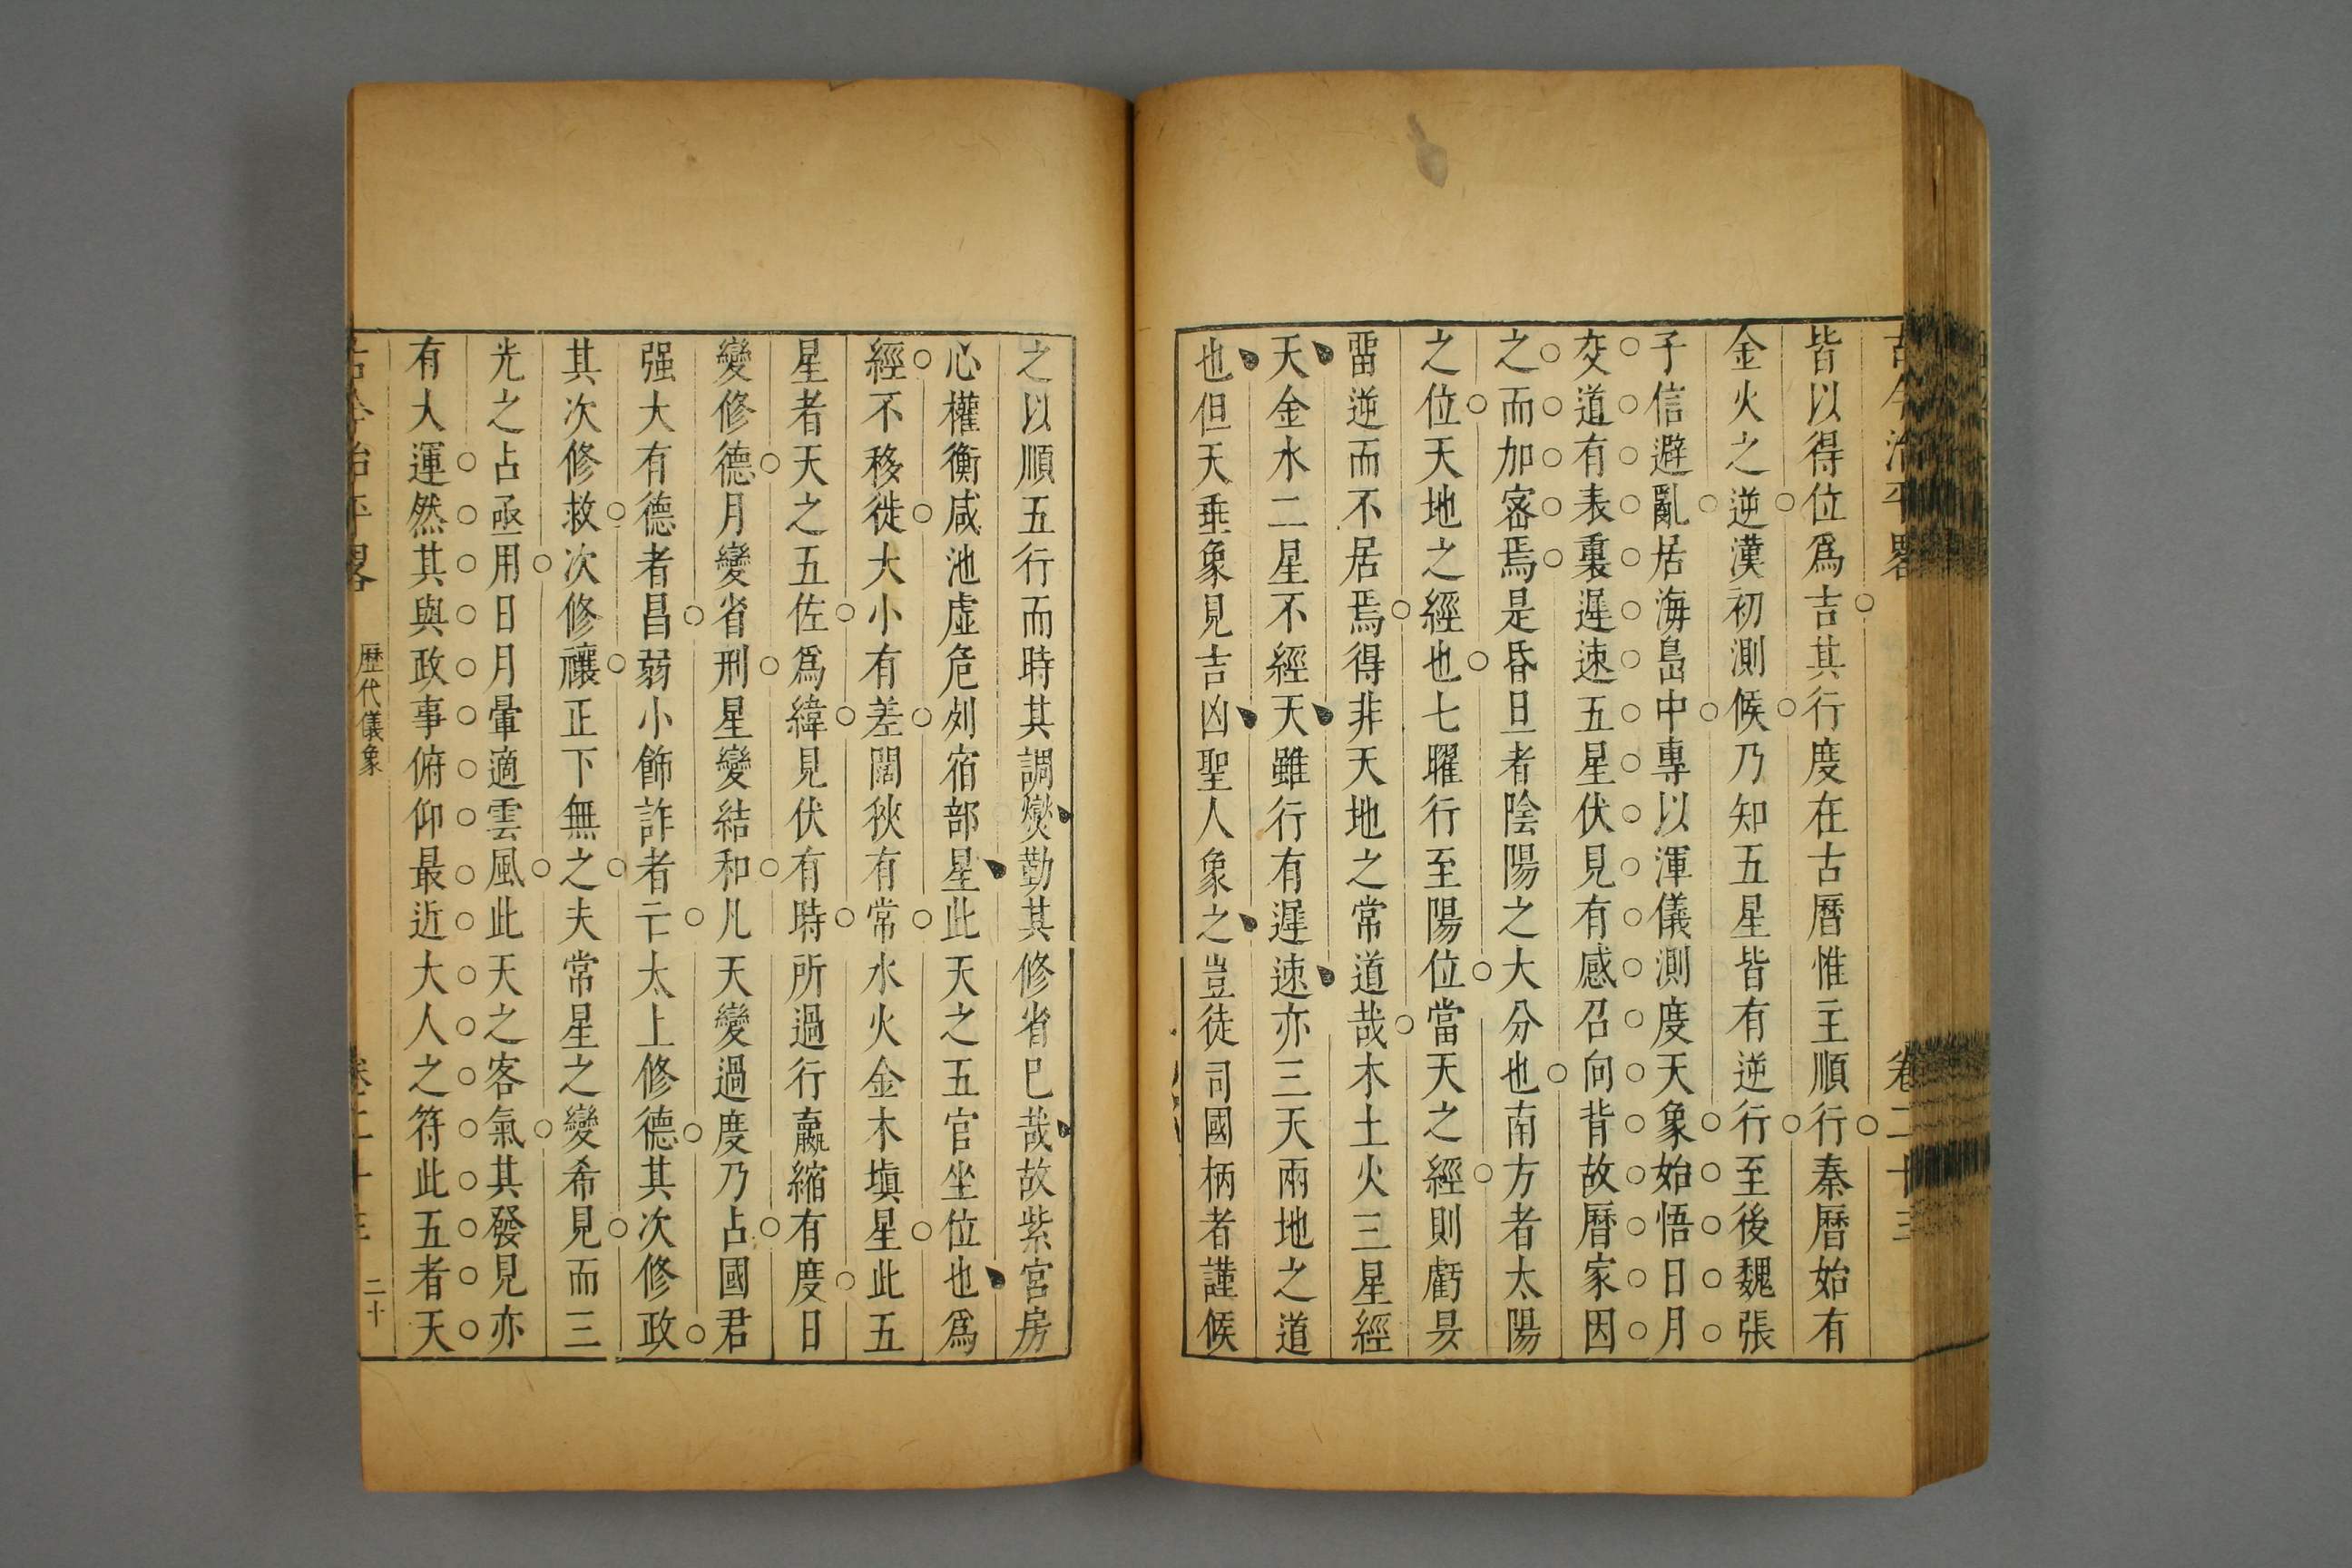 古今治平畧 卷二十三
皆以得位爲吉其行度在古曆惟主順行秦曆始有
金火之逆漢初測候乃知五星皆有逆行至後魏張
子信避亂居海島中專以渾儀測度天象始悟日月
交道有表裏遲速五星伏見有感召向背故曆家因
之而加密焉是昏旦者陰陽之大分也南方者太陽
之位天地之經也七曜行至陽位當天之經則虧昃
畱逆而不居焉得非天地之常道哉木土火三星經
天金水二星不經天雖行有遲速亦三天兩地之道
也但天垂象見吉凶聖人象之豈徒司國柄者謹候
之以順五行而時其調爕勤其修省已哉故紫宮房
心權衡咸池虛危列宿部星此天之五官坐位也爲
經不移徙大小有差闊狹有常水火金木塡星此五
星者天之五佐爲緯見伏有時所過行嬴縮有度日
變修德月變省刑星變結和凡天變過度乃占國君
强大有德者昌弱小飾詐者亡太上修德其次修政
其次修救次修禳正下無之夫常星之變希見而三
光之占亟用日月暈適雲風此天之客氣其發見亦
有大運然其與政事俯仰最近大人之符此五者天
古今治平畧 歷代儀象 卷二十三 二十